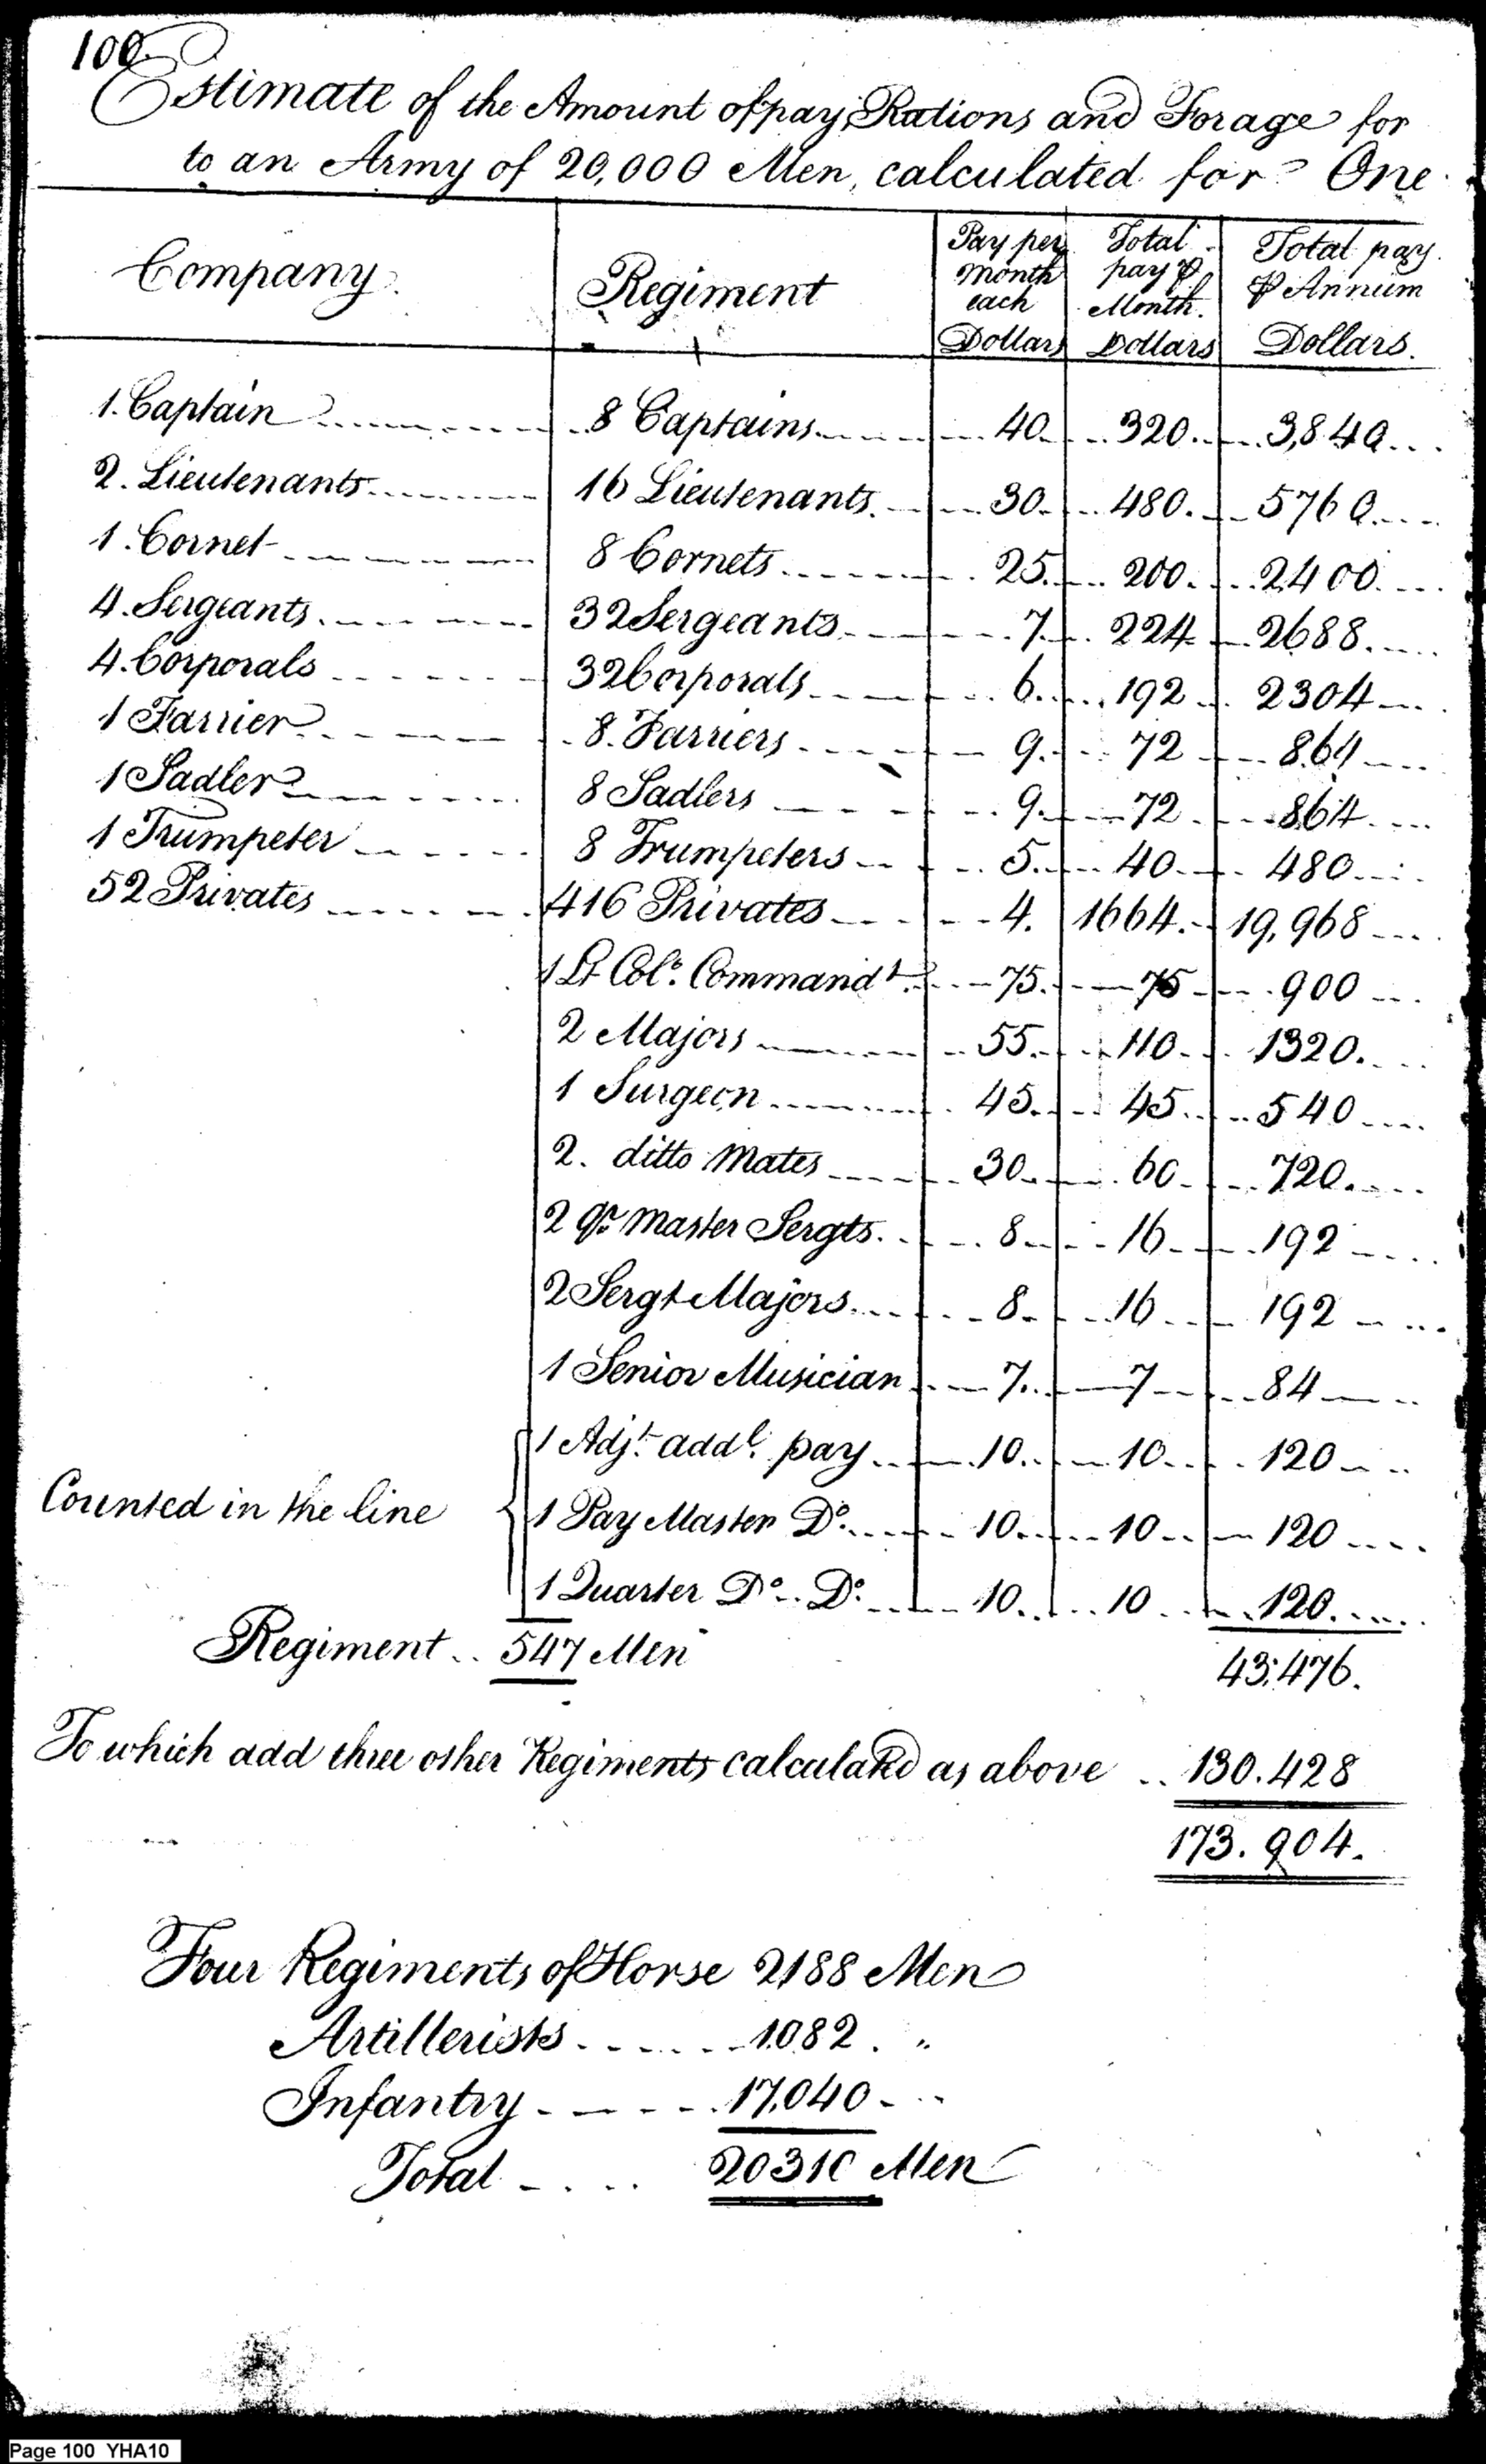 100
Estimate of the Amount of pay, Rations and Forage for
to an Army of 20,000 Men, calculated for One
Company. Regiment Pay per month each Dollars Total pay ⅌ Month. Dollars Total pay ⅌ Annum Dollars.
1. Captain 8 Captains 40. 320. 3,840
2. Lieutenants 16 Lieutenants. 30. 480. 5760
1. Cornet 8 Cornets 25. 200. 2400
4. Sergeants 32 Sergeants 7. 224 2688
4. Corporals 32 Corporals 6. 192 2304
1 Farrier 8. Farriers 9. 72 864
1 Sadler 8 Sadlers 9. 72 864
1 Trumpeter 8 Trumpeters 5. 40. 480
52 Privates 416 Privates 4. 1664. 19,968
1 Lt Colo. Commandt. 75. 75 900
2 Majors 55. 110. 1320.
1 Surgeon 45. 45. 540
2. ditto Mates 30. 60. 720.
2 Qr. Master Sergts. 8. 16. 192
2 Sergt Majors 8. 16. 192
1 Senior Musician 7. 7 84
1 Adjt. addl. pay 10. 10. 120
Counted in the line 1 Pay Master Do. 10. 10. 120
1 Quarter Do. Do. 10. 10 120.
Regiment 547 Men 43,476.
To which add three other Regiments calculated as above 130.428
173.904.
Four Regiments of Horse 2188 Men
Artillerists 1082. "
Infantry 17,040 "
Total 20310 Men
Page 100 YHA10